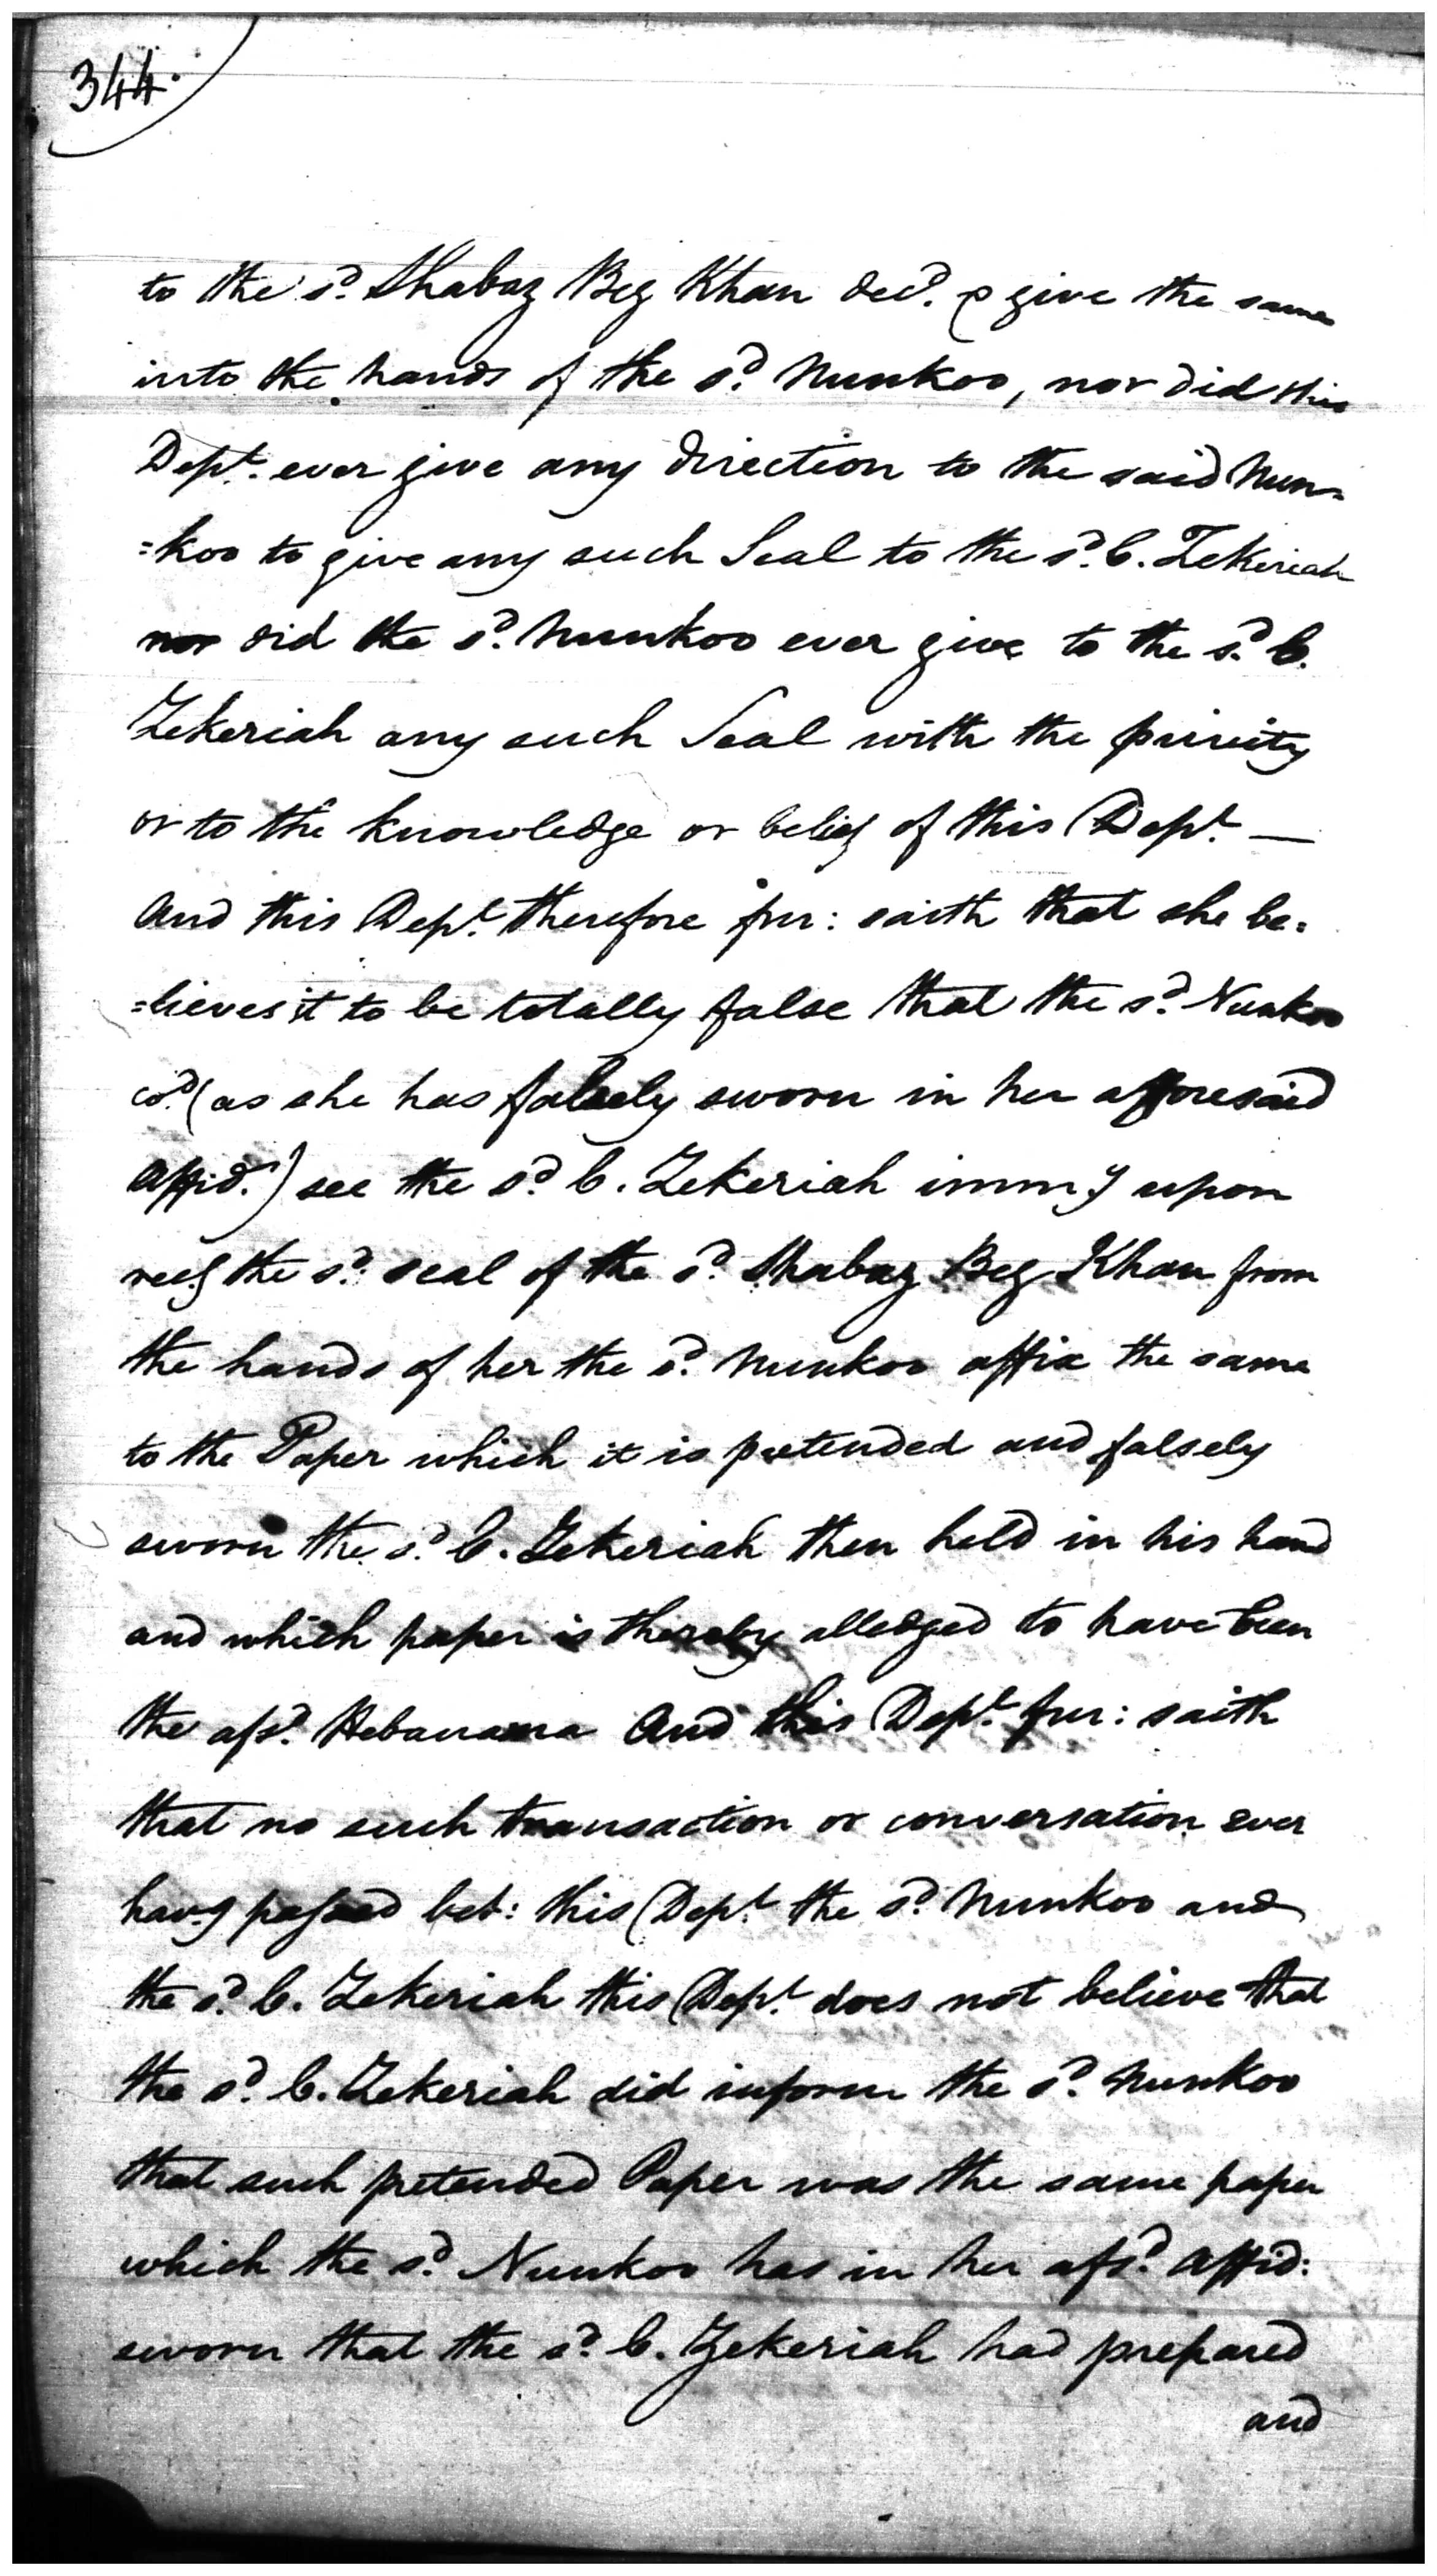 344.
to the sd. Shabaz Beg Khan decd. & give the same
into the hands of the sd. Nunkoo, nor did this
Dept. ever give any direction to the said Nun=
=koo to give any such Seal to the sd. C. Zekeriah
nor did the sd. Nunkoo ever give to the sd. C.
Zekeriah any such Seal with the privity
or to the knowledge or belief of this Dept. —
And this Dept. therefore fur: saith that she be=
=lieves it to be totally false that the sd. Nunkoo
cod. (as she has falsely sworn in her afforesaid
Affid.) see the sd. C. Zekeriah immy upon
recg the sd. seal of the sd. Shabaz Beg Khan from
the hands of her the sd. Nunkoo affix the same
to the Paper which it is pretended and falsely
sworn the sd. C. Zekeriah then held in his hand
and which paper is thereby alledged to have been
the afsd. Hebanama And this Dept. fur: saith
that no such transaction or conversation ever
havg passed bet: this Dept. the sd. Nunkoo and
the sd. C. Zekeriah this Dept. does not believe that
the sd. C. Zekeriah did inform the sd. Nunkoo
that such pretended Paper was the same paper
which the sd. Nunkoo has in her afsd. Affid:
sworn that the sd. C. Zekeriah had prepared
and